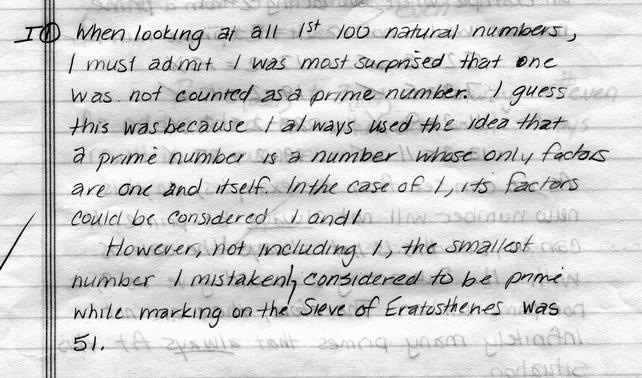 I① When looking at all 1st 100 natural numbers,
I must admit I was most surprised that one
was not counted as a prime number. I guess
this was because I always used the idea that
a prime number is a number whose only factors
are one and itself. In the case of 1, its factors
could be considered 1 and 1
However, not including 1, the smallest
number I mistakenly considered to be prime
while marking on the Sieve of Eratosthenes was
51.